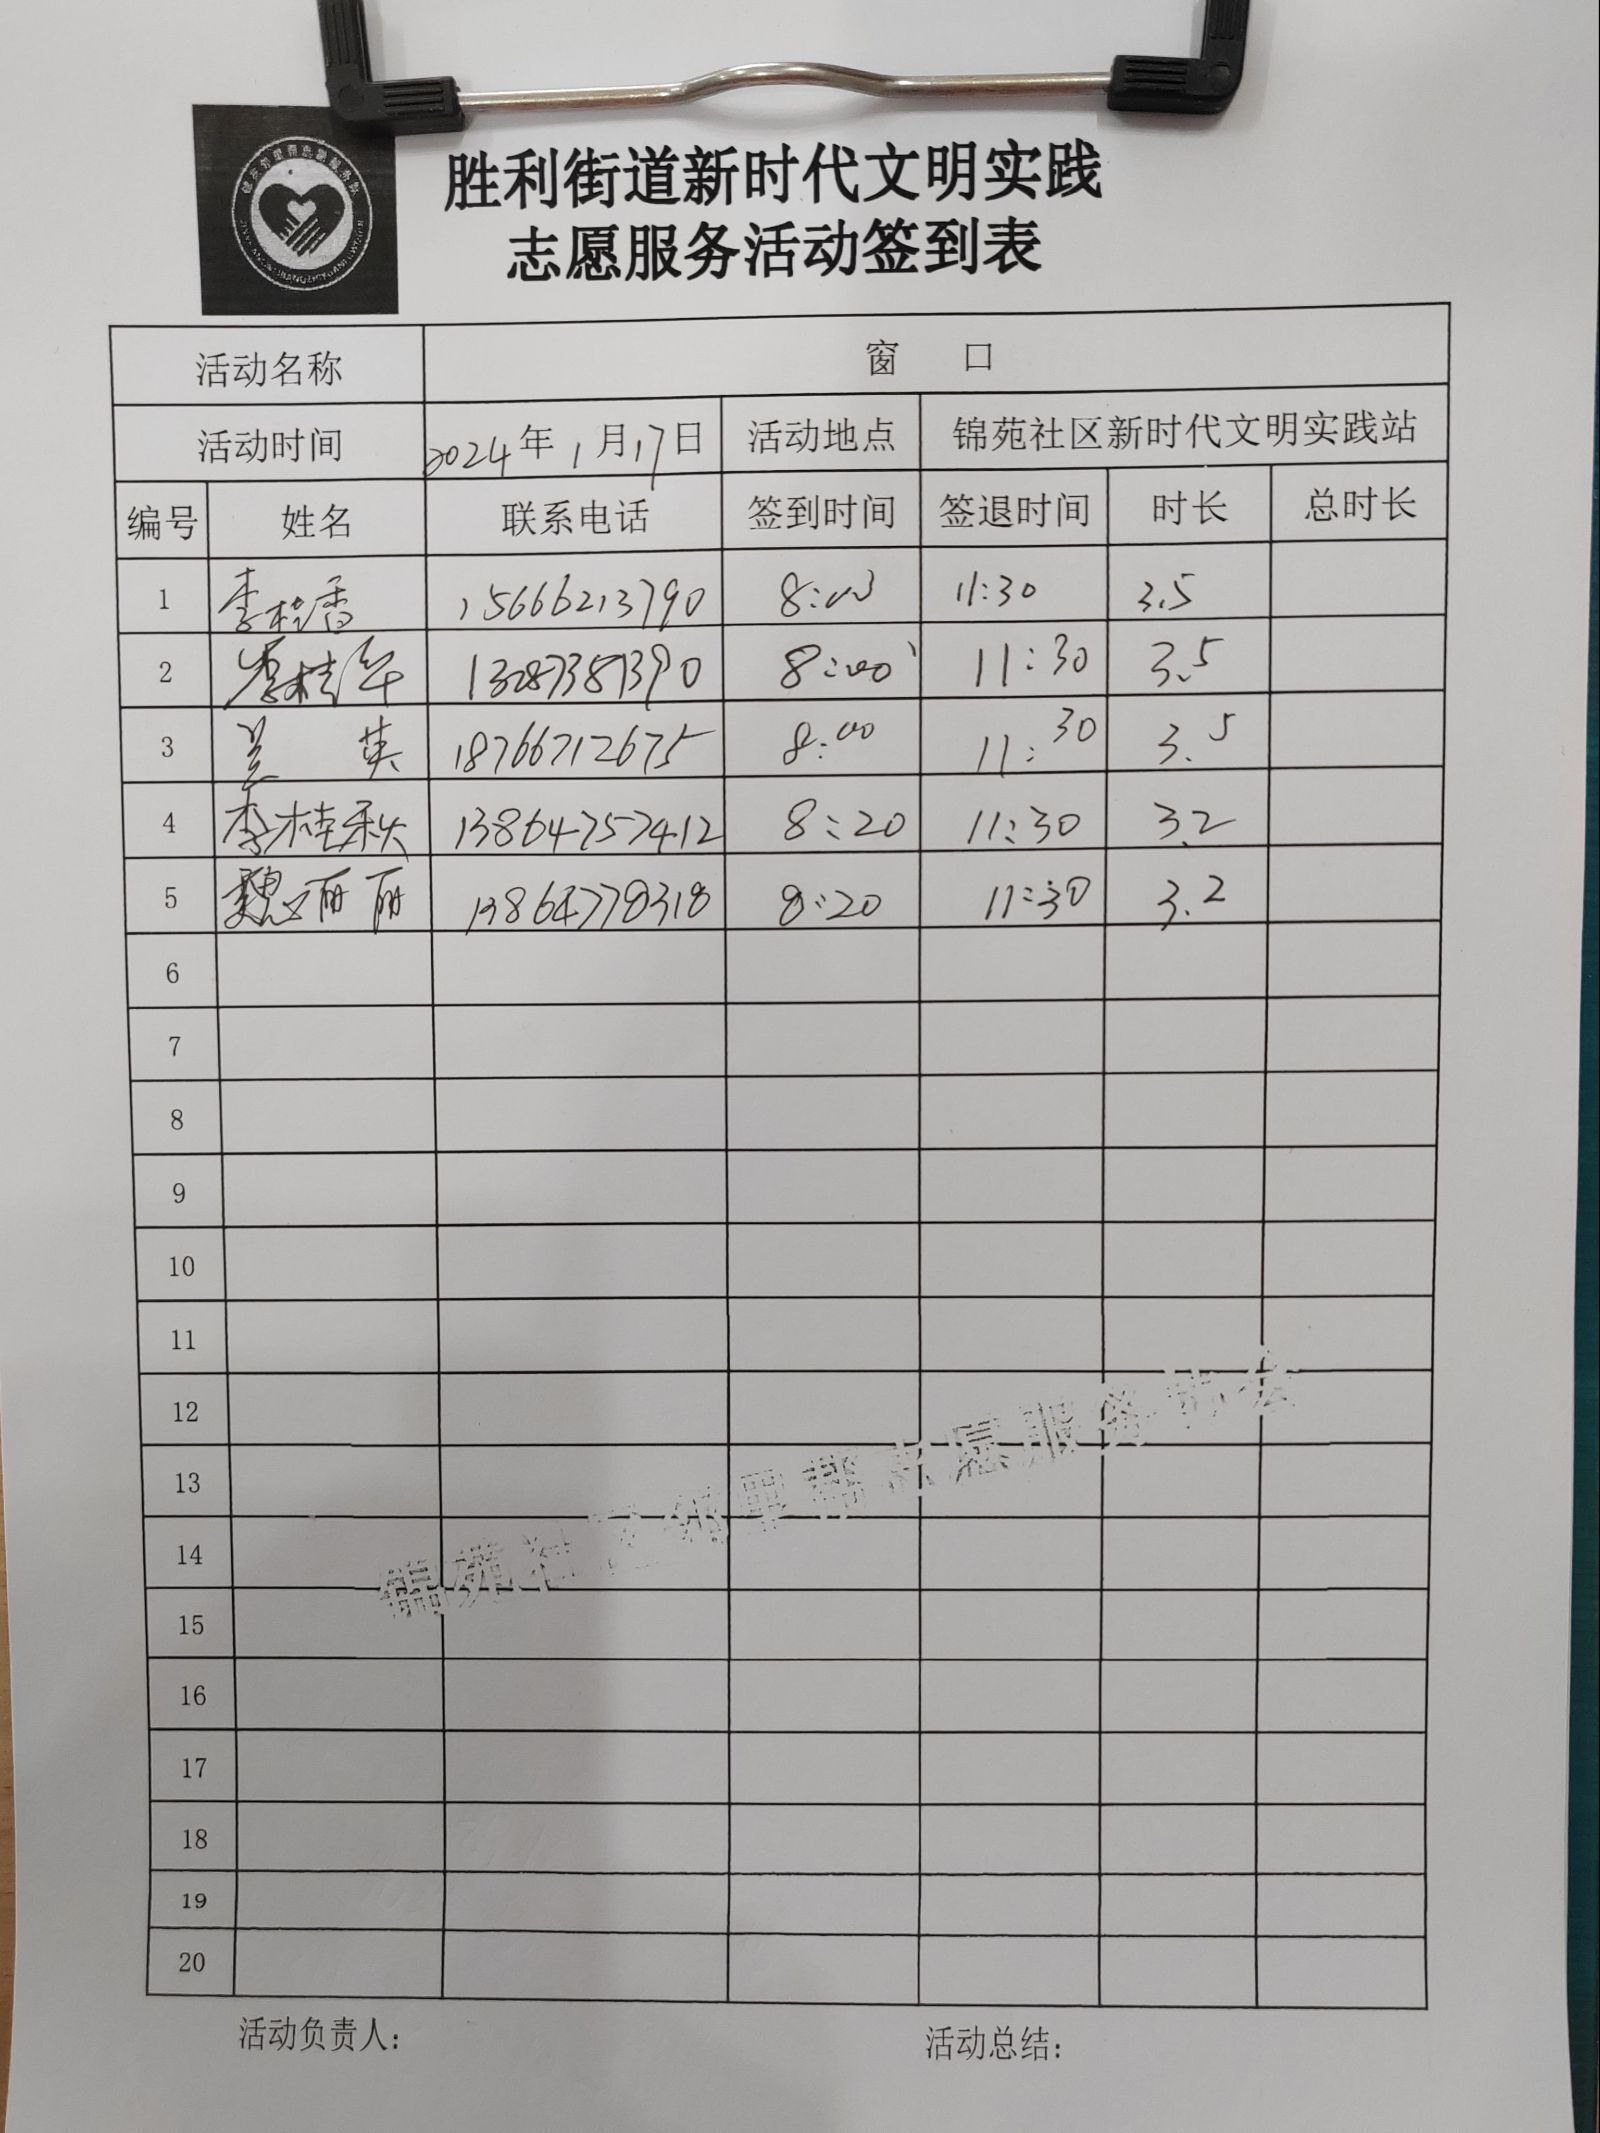 胜利街道新时代文明实践
志愿服务活动签到表
活动名称 窗 口
活动时间 2024年1月17日 活动地点 锦苑社区新时代文明实践站
编号 姓名 联系电话 签到时间 签退时间 时长 总时长
1 李桂香 15666213790 8:00 11:30 3.5
2 李桂华 13287381390 8:00 11:30 3.5
3 兰 英 18766712675 8:00 11:30 3.5
4 李桂秋 13864757412 8:20 11:30 3.2
5 魏丽丽 13864778318 8:20 11:30 3.2
6
7
8
9
10
11
12
13
14
15
16
17
18
19
20
锦苑社区邻里帮志愿服务协会
活动负责人:
活动总结: